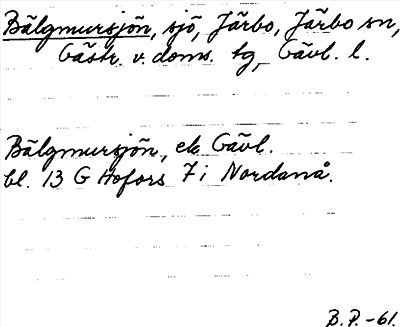 Bälgmursjön, sjö, Järbo, Järbo sn,
Gästr. v. doms. tg, Gävl. l.
Bälgmursjön, ek Gävl.
bl. 13 G Hofors 7 i Nordanå.
B.P.-61.